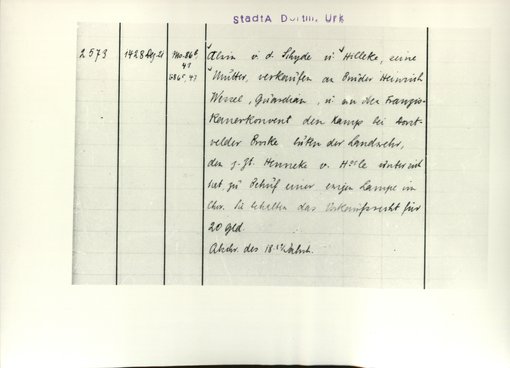 StadtA Dortm. Urk
2573 1428 Dez 21 Mo. 86c 41 Alvin v. d. Schyde u. Hilleke, seine
Mutter, verkaufen an Bruder Heinrich
Wessel, Guardian, u. an den Franzis-
kanerkonvent den Kamp bei Dorst-
velder Broke buten der Landwehr,
den z. Zt. Henneke v. H unter sich
hat zu Behuf einer ewigen Lampe im
Chor. Sie behalten das Vorkaufsrecht für
20 gld
Abschr. des 18. Jahrh.